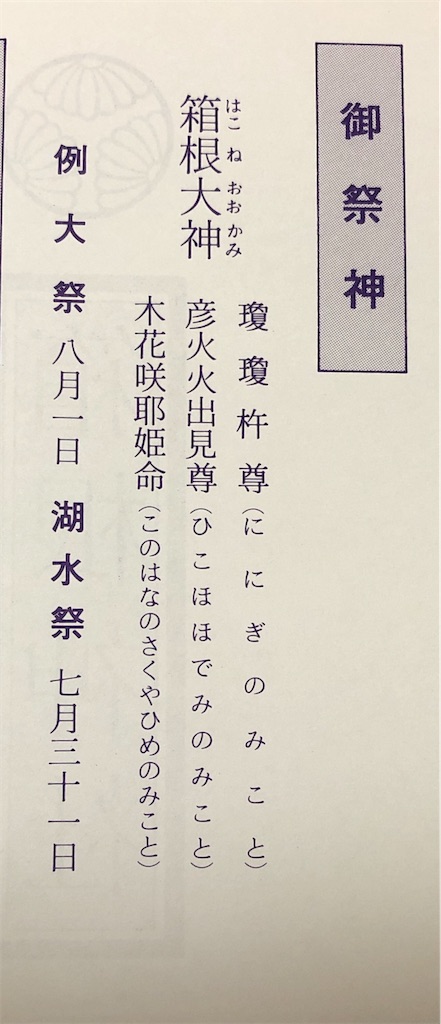 御祭神
箱根大神
はこねおおかみ
瓊瓊杵尊(ににぎのみこと)
彦火火出見尊(ひこほほでみのみこと)
木花咲耶姫命(このはなのさくやひめのみこと)
例大祭 八月一日 湖水祭 七月三十一日